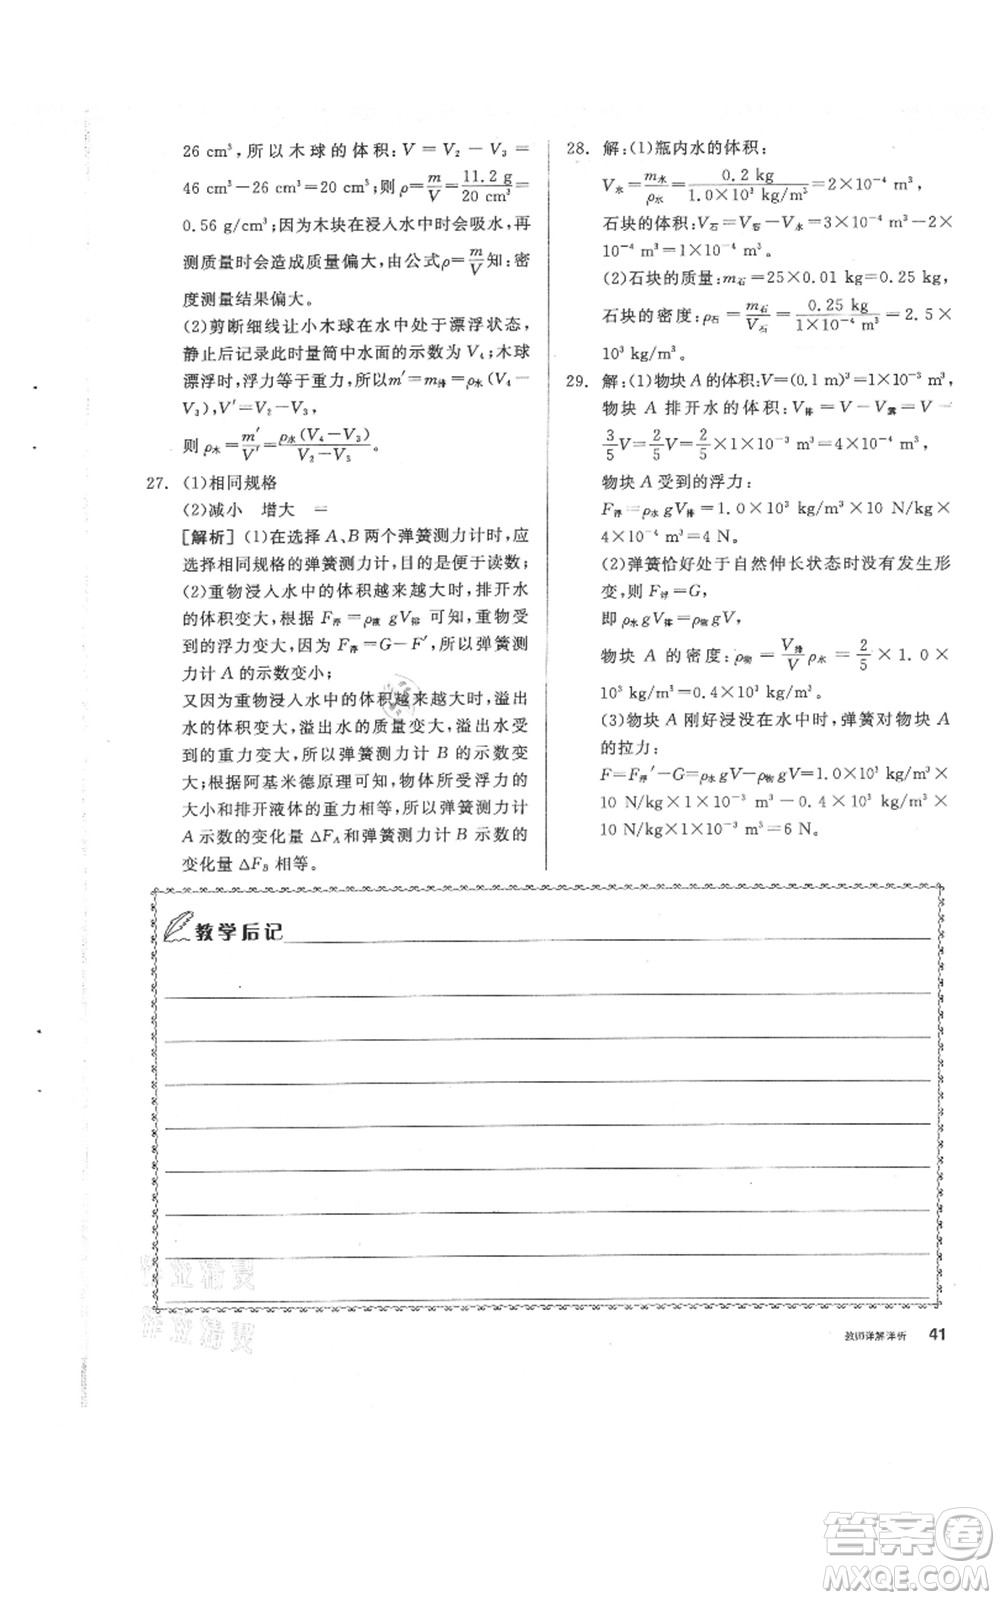 26 cm³,所以木球的体积:V=V₂-V₃=
46 cm³-26 cm³=20 cm³;则ρ=m/V=11.2 g/20 cm³=
0.56 g/cm³;因为木块在浸入水中时会吸水,再
测质量时会造成质量偏大,由公式ρ=m/V知:密
度测量结果偏大。
(2)剪断细线让小木球在水中处于漂浮状态,
静止后记录此时量筒中水面的示数为V₄;木球
漂浮时,浮力等于重力,所以m′=m排=ρ水(V₄-
V₃),V′=V₂-V₃,
则ρ木=m′/V′=ρ水(V₄-V₃)/(V₂-V₃)。
27. (1)相同规格
(2)减小 增大 =
[解析] (1)在选择A、B两个弹簧测力计时,应
选择相同规格的弹簧测力计,目的是便于读数;
(2)重物浸入水中的体积越来越大时,排开水
的体积变大,根据F浮=ρ液gV排可知,重物受
到的浮力变大,因为F浮=G-F′,所以弹簧测
力计A的示数变小;
又因为重物浸入水中的体积越来越大时,溢出
水的体积变大,溢出水的质量变大,溢出水受
到的重力变大,所以弹簧测力计B的示数变
大;根据阿基米德原理可知,物体所受浮力的
大小和排开液体的重力相等,所以弹簧测力计
A示数的变化量ΔF_A和弹簧测力计B示数的
变化量ΔF_B相等。
28. 解:(1)瓶内水的体积:
V水=m水/ρ水=0.2 kg/(1.0×10³ kg/m³)=2×10⁻⁴ m³,
石块的体积:V石=V容-V水=3×10⁻⁴ m³-2×
10⁻⁴ m³=1×10⁻⁴ m³。
(2)石块的质量:m石=25×0.01 kg=0.25 kg,
石块的密度:ρ石=m石/V石=0.25 kg/(1×10⁻⁴ m³)=2.5×
10³ kg/m³。
29. 解:(1)物块A的体积:V=(0.1 m)³=1×10⁻³ m³,
物块A排开水的体积:V排=V-V露=V-
3/5V=2/5V=2/5×1×10⁻³ m³=4×10⁻⁴ m³,
物块A受到的浮力:
F浮=ρ水gV排=1.0×10³ kg/m³×10 N/kg×
4×10⁻⁴ m³=4 N。
(2)弹簧恰好处于自然伸长状态时没有发生形
变,则F浮=G,
即ρ水gV排=ρ物gV,
物块A的密度:ρ物=V排/Vρ水=2/5×1.0×
10³ kg/m³=0.4×10³ kg/m³。
(3)物块A刚好浸没在水中时,弹簧对物块A
的拉力:
F=F浮′-G=ρ水gV-ρ物gV=1.0×10³ kg/m³×
10 N/kg×1×10⁻³ m³-0.4×10³ kg/m³×
10 N/kg×1×10⁻³ m³=6 N。
教学后记
作业精灵
作业精灵
教师详解详析 41
答案卷
MXQE.COM